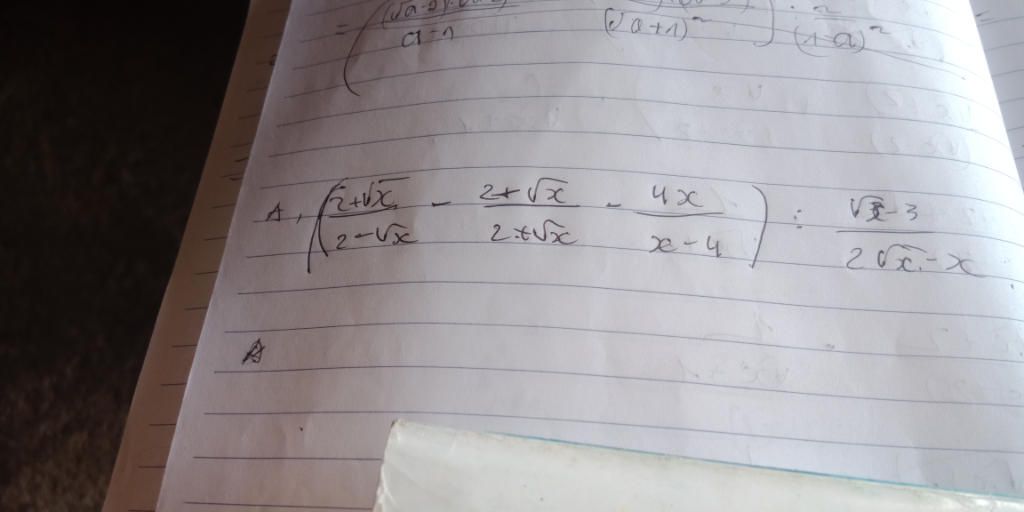 = ( a-1 (√a+1)² ) : 2/(1-a)² =
A, ( (2+√x)/(2-√x) - (2+√x)/(2+√x) - 4x/(x-4) ) : (√x-3)/(2√x-x)
A